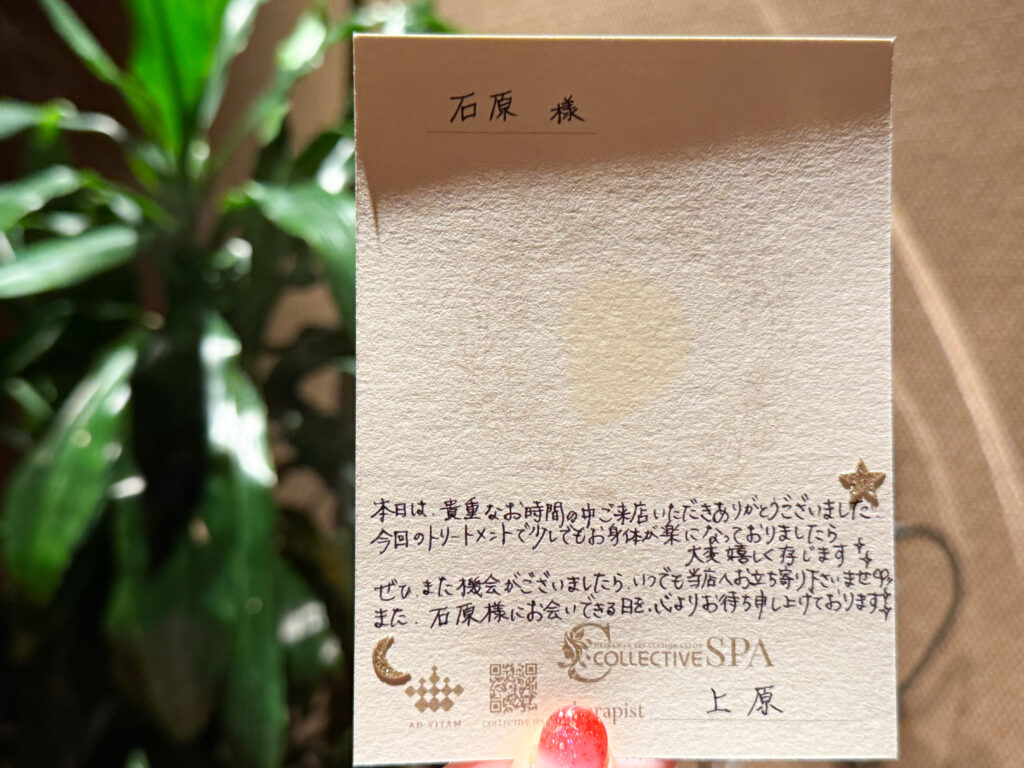 石原 様
本日は、貴重なお時間の中ご来店いただきありがとうございました
今回のトリートメントで少しでもお身体が楽になっておりましたら
大変嬉しく存じます
ぜひ また機会がございましたら、いつでも当店へお立ち寄り下さいませ
また、石原様にお会いできる日を、心よりお待ち申し上げております
OKINAWAN RELAXATION SALON
COLLECTIVE SPA
AD VITAM
COLLECTIVE SPA
上原